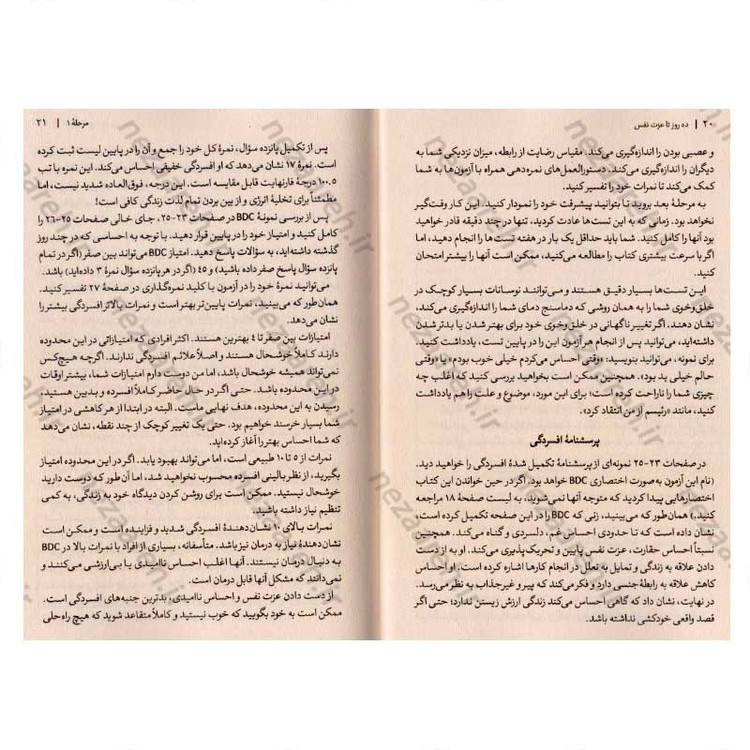 ۲۰ | ده روز تا عزت نفس
و عصبی بودن را اندازه‌گیری می‌کند. مقیاس رضایت از رابطه، میزان نزدیکی شما به
دیگران را اندازه‌گیری می‌کند. دستورالعمل‌های نمره‌دهی همراه با آزمون‌ها به شما
کمک می‌کند تا نمرات خود را تفسیر کنید.
به مرحلهٔ بعد بروید تا بتوانید پیشرفت خود را نمودار کنید. این کار وقت‌گیر
نخواهد بود. زمانی که به این تست‌ها عادت کردید، تنها در چند دقیقه قادر خواهید
بود آنها را کامل کنید. شما باید حداقل یک بار در هفته تست‌ها را انجام دهید، اما
اگر با سرعت بیشتری کتاب را مطالعه می‌کنید، ممکن است آنها را بیشتر امتحان
کنید.
این تست‌ها بسیار دقیق هستند و می‌توانند نوسانات بسیار کوچک در
خلق‌وخوی شما را به همان روشی که دماسنج دمای شما را اندازه‌گیری می‌کند،
نشان دهند. اگر تغییر ناگهانی در خلق‌وخوی خود برای بهتر شدن یا بدتر شدن
داشته‌اید، می‌توانید پس از انجام هر آزمون این را در پایین تست، یادداشت کنید.
برای نمونه، می‌توانید بنویسید: «وقتی احساس می‌کردم خیلی خوب بودم» یا «وقتی
حالم خیلی بد بود». همچنین ممکن است بخواهید بررسی کنید که اغلب چه
چیزی شما را ناراحت کرده است؛ برای این مورد، موضوع و علت را هم یادداشت
کنید، مانند «رئیسم از من انتقاد کرد».
پرسشنامهٔ افسردگی
در صفحات ۲۳-۲۵ نمونه‌ای از پرسشنامهٔ تکمیل شدهٔ افسردگی را خواهید دید.
(نام این آزمون به‌صورت اختصاری BDC خواهد بود. اگر در حین خواندن این کتاب
اختصارهایی پیدا کردید که متوجه آنها نمی‌شوید، به لیست صفحهٔ ۱۸ مراجعه
کنید.) همان‌طور که می‌بینید، زنی که BDC را در این صفحه تکمیل کرده است،
نشان داده است که تا حدودی احساس غم، دلسردی و گناه می‌کند. همچنین
نسبتاً احساس حقارت، عزت نفس پایین و تحریک‌پذیری می‌کند. او به از دست
دادن علاقه به زندگی و تمایل به تعلل در انجام کارها اشاره کرده است. او احساس
کاهش علاقه به رابطهٔ جنسی دارد و فکر می‌کند که پیر و غیرجذاب به نظر می‌رسد.
در نهایت، نشان داد که گاهی احساس می‌کند زندگی ارزش زیستن ندارد؛ حتی اگر
قصد واقعی خودکشی نداشته باشد.
مرحلهٔ ۱ | ۲۱
پس از تکمیل پانزده سؤال، نمرهٔ کل خود را جمع و آن را در پایین لیست ثبت کرده
است. نمرهٔ ۱۷ نشان می‌دهد که او افسردگی خفیفی احساس می‌کند. این نمره با تب
۱۰۰.۵ درجهٔ فارنهایت قابل مقایسه است. این درجه، فوق‌العاده شدید نیست، اما
مطمئناً برای تخلیهٔ انرژی و از بین بردن تمام لذت زندگی کافی است!
پس از بررسی نمونهٔ BDC در صفحات ۲۳-۲۵، جای خالی صفحات ۲۵-۲۶ را
کامل کنید و امتیاز خود را در پایین قرار دهید. با توجه به احساسی که در چند روز
گذشته داشته‌اید، به سؤالات پاسخ دهید. امتیاز BDC می‌تواند بین صفر (اگر در تمام
پانزده سؤال پاسخ صفر داده باشید) و ۴۵ (اگر در هر پانزده سؤال نمرهٔ ۳ داده‌اید) باشد.
می‌توانید نمرهٔ خود را در آزمون با کلید نمره‌گذاری در صفحهٔ ۲۷ تفسیر کنید.
همان‌طور که می‌بینید، نمرات پایین‌تر بهتر است و نمرات بالاتر افسردگی بیشتری را
نشان می‌دهد.
امتیازات بین صفر تا ۴ بهترین هستند. اکثر افرادی که امتیازاتی در این محدوده
دارند کاملاً خوشحال هستند و اصلاً علائم افسردگی ندارند. اگرچه هیچ‌کس
نمی‌تواند همیشه خوشحال باشد، اما من دوست دارم امتیازات شما، بیشتر اوقات
در این محدوده باشد. حتی اگر در حال حاضر کاملاً افسرده و بدبین هستید،
رسیدن به این محدوده، هدف نهایی ماست. البته در ابتدا از هر کاهشی در امتیاز
شما بسیار خرسند خواهیم بود. حتی یک تغییر کوچک از چند نقطه، نشان می‌دهد
که شما احساس بهتر را آغاز کرده‌اید.
نمرات از ۵ تا ۱۰ طبیعی است، اما می‌تواند بهبود یابد. اگر در این محدوده امتیاز
بگیرید، از نظر بالینی افسرده محسوب نخواهید شد، اما آن طور که دوست دارید
خوشحال نیستید. ممکن است برای روشن کردن دیدگاه خود به زندگی، به کمی
تنظیم نیاز داشته باشید.
نمرات بالای ۱۰ نشان‌دهندهٔ افسردگی شدید و فزاینده است و ممکن است
نشان‌دهندهٔ نیاز به درمان نیز باشد. متأسفانه، بسیاری از افراد با نمرات بالا در BDC
به دنبال درمان نیستند. آنها اغلب احساس ناامیدی یا بی‌ارزشی می‌کنند و
نمی‌دانند که مشکل آنها قابل درمان است.
از دست دادن عزت نفس و احساس ناامیدی، بدترین جنبه‌های افسردگی است.
ممکن است به خود بگویید که خوب نیستید و کاملاً متقاعد شوید که هیچ راه‌حلی
nezareh.ir